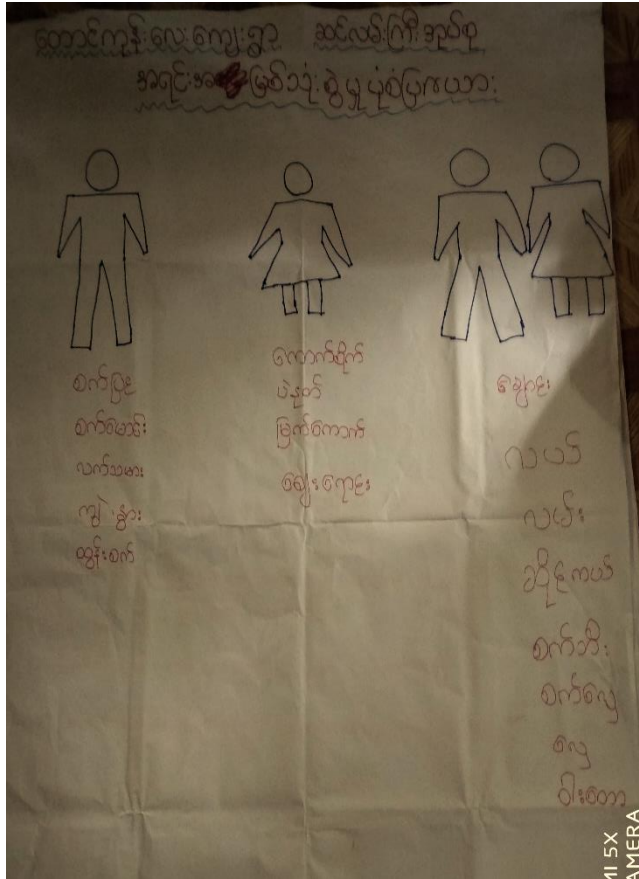 တောင်ကုန်းလေးကျေးရွာ ဆင်လမ်းကြီးအုပ်စု
အရင်းအမြစ်သုံးစွဲမှုပုံစံပြဇယား
စက်ပြင်
စက်မောင်း
လက်သမား
ကျွဲ၊နွား
ထွန်စက်
ကောက်စိုက်
ပဲနုတ်
မြက်ကောက်
ဈေးရောင်း
ချောင်း
လယ်
လမ်း
ဆိုင်ကယ်
စက်ဘီး
စက်လှေ
လှေ
ဝါးတော
MI 5X
AMERA